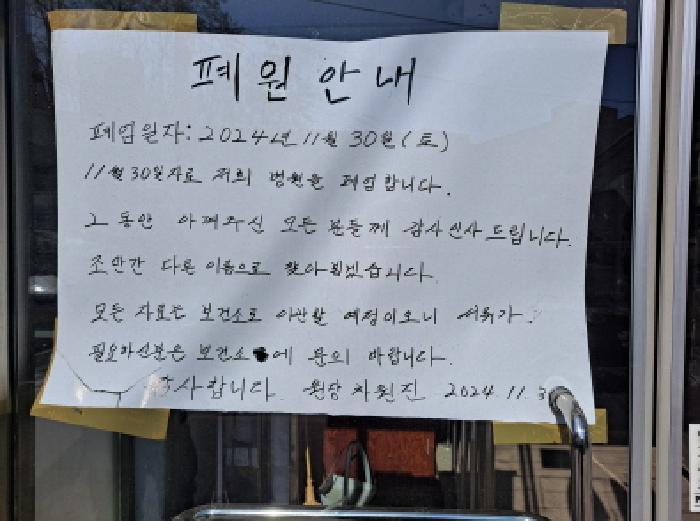 폐 원 안 내
폐업일자: 2024년 11월 30일(토)
11월 30일자로 저희 병원을 폐업합니다.
그 동안 아껴주신 모든 분들께 감사인사 드립니다.
조만간 다른 이름으로 찾아뵙겠습니다.
모든 자료는 보건소로 이관할 예정이오니 서류가
필요하신분은 보건소에 문의 바랍니다.
감사합니다. 원장 차원진 2024. 11. 3